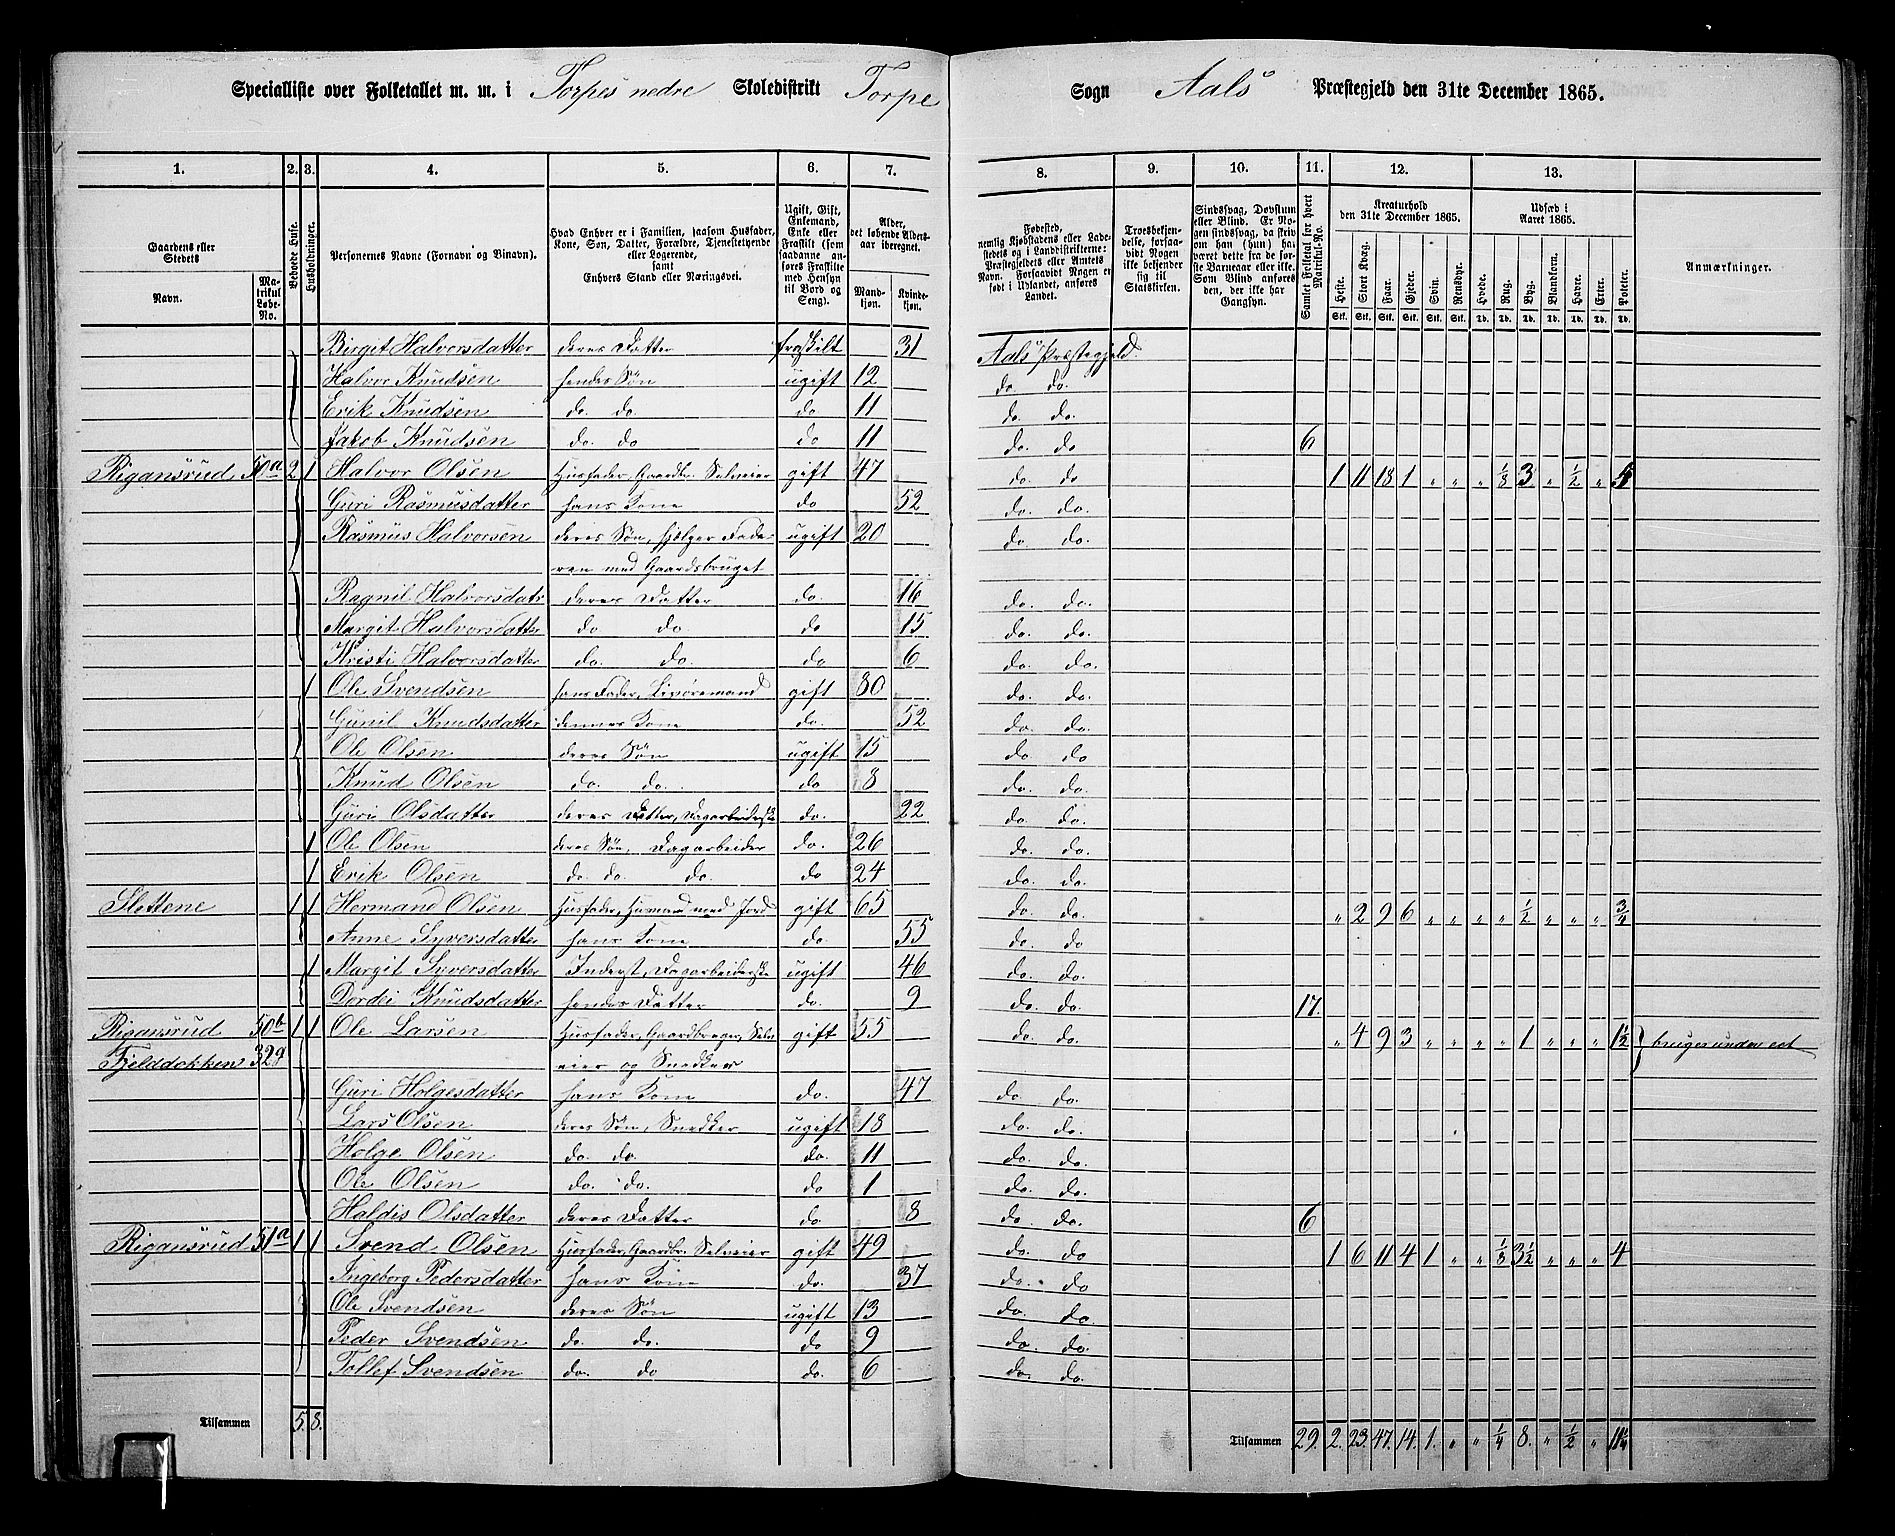 Specialliste over Folketallet m. m. i Torpes nedre Skoledistrikt Torpe Sogn Aals Præstegjeld den 31te December 1865.
1. 2. 3. 4. 5. 6. 7. 8. 9. 10. 11. 12. 13.
Gaardens eller Stedets
Navn.
Matrikul Løbe-No.
Beboede Huse.
Husholdninger.
Personernes Navne (Fornavn og Binavn).
Hvad Enhver er i Familien, saasom Husfader, Kone, Søn, Datter, Forældre, Tjenestetyende eller Logerende, samt Enhvers Stand eller Næringsvei.
Ugift, Gift, Enkemand, Enke eller Fraskilt (som saadanne anføres Fraskilte med Hensyn til Bord og Seng).
Alder, det løbende Aldersaar iberegnet.
Mandkjøn.
Kvindekjøn.
Fødested, nemlig Kjøbstadens eller Ladestedets og i Landdistrikterne: Præstegjeldets eller Amtets Navn. Forsaavidt Nogen er født i Udlandet, anføres Landet.
Troesbekjendelse, forsaavidt Nogen ikke bekjender sig til Statskirken.
Sindssvag, Døvstum eller Blind. Er Nogen sindssvag, da skriv om han (hun) har været dette fra de første Barneaar eller ikke. Som Blind anføres den, der ikke har Gangsyn.
Samlet Folketal for hvert Matrikul-No.
Kreaturhold den 31te December 1865.
Heste. Stort Kvæg. Faar. Gjeder. Svin. Rensdyr.
Stk. Stk. Stk. Stk. Stk. Stk.
Udsæd i Aaret 1865.
Hvede. Rug. Byg. Blandkorn. Havre. Erter. Poteter.
Td. Td. Td. Td. Td. Td. Td.
Anmærkninger.
Birgit Halvorsdatter deres Datter fraskilt 31 Aals Præstegjeld
Halvor Knudsen hendes Søn ugift 12 do. do.
Erik Knudsen do. do do 11 do. do.
Jakob Knudsen do. do do 11 do. do 6
Rigansrud 50a 2 1 Halvor Olsen Husfader, Gaardbr. Selveier gift 47 do. do 1 11 18 1 „ „ „ 1/8 3 „ 1/2 „ 5
Guri Rasmusdatter hans Kone do 52 do. do.
Rasmus Halvorsen deres Søn, hjelper Fade- ugift 20 do. do.
ren med Gaardsbruget
Ragnil Halvorsdatr deres Datter do. 16 do. do.
Margit Halvorsdatter do do. do 15 do. do.
Kristi Halvorsdatter do. do. do 6 do. do.
1 Ole Svendsen hans Fader, Livøremand gift 80 do. do.
Gunil Knudsdatter dennes Kone do. 52 do. do.
Ole Olsen deres Søn ugift 15 do. do
Knud Olsen do. do. do 8 do. do.
Guri Olsdatter deres Datter, Dagarbeiderske do. 22 do. do.
1 Ole Olsen deres Søn, Dagarbeider do. 26 do. do.
1 Erik Olsen do. do. do. do 24 do. do.
Slettene 1 1 Hermand Olsen Husfader, Husmand med Jord gift 65 do. do. „ 2 9 6 „ „ „ „ 1/2 „ „ „ 3/4
Anne Syversdatter hans Kone do. 55 do. do
1 Margit Syversdatter Inderst, Dagarbeiderske ugift 46 do. do.
Dordei Knudsdatter hendes Datter do. 9 do. do. 17.
Rigansrud 50b 1 1 Ole Larsen Husfader, Gaardbruger, Selv- gift 55 do. do. „ 4 9 3 „ „ „ „ 1 „ „ „ 1 1/2 bruges under eet
Fjelddokken 329 eier og Snedker
Guri Holgesdatter hans Kone do. 47 do do.
Lars Olsen deres Søn, Snedker ugift 18 do. do.
Holge Olsen do. do. do. 11 do. do.
Ole Olsen do. do. do 1 do. do.
Haldis Olsdatter deres Datter do. 8 do. do. 6
Rigansrud 51a 1 1 Svend Olsen Husfader, Gaardbr. Selveier gift 49 do. do 1 6 11 4 1 „ „ 1/8 3 1/2 „ „ „ 4
Ingeborg Pedersdatter hans Kone do. 37 do. do
Ole Svendsen deres Søn ugift 13 do. do.
Peder Svendsen do. do. do 9 do. do.
Tollef Svendsen do. do do. 6 do. do.
Tilsammen 5. 8. Tilsammen 29. 2. 23. 47. 14. 1. „ „ 1/4 8. „ 1/2 „ 11 1/4